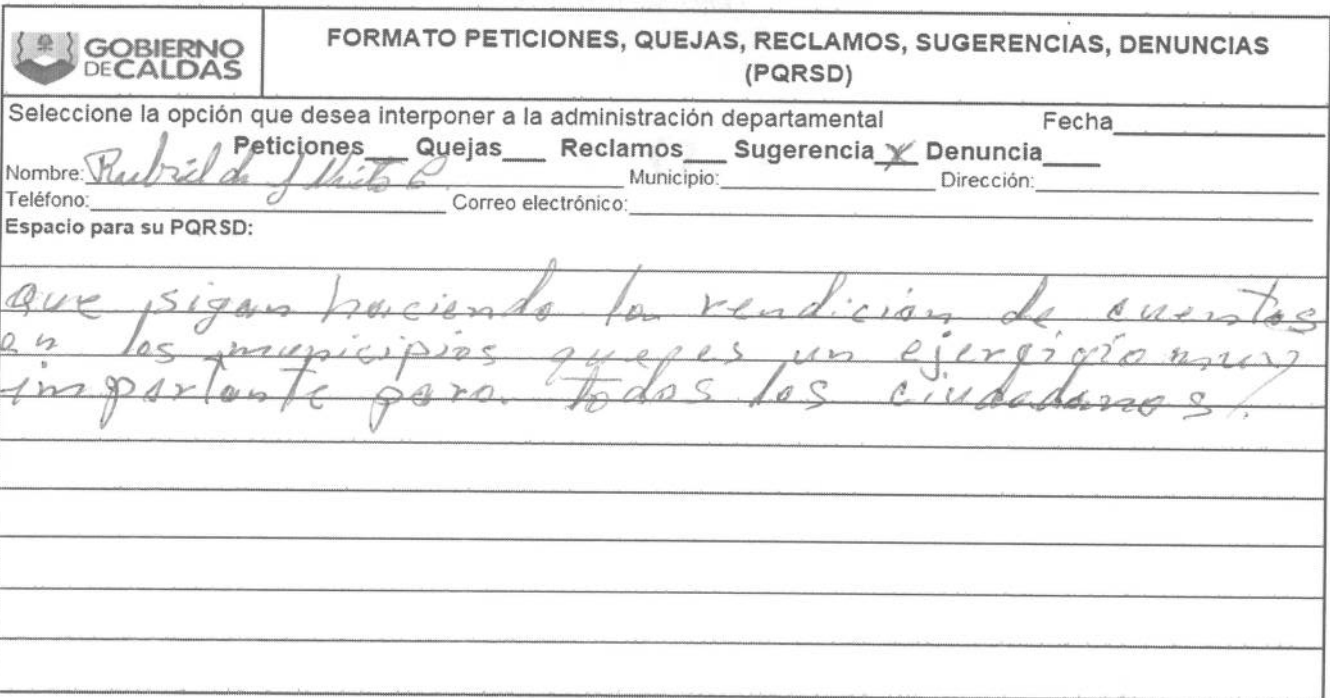 GOBIERNO
DE CALDAS
FORMATO PETICIONES, QUEJAS, RECLAMOS, SUGERENCIAS, DENUNCIAS
(PQRSD)
Seleccione la opción que desea interponer a la administración departamental Fecha
Peticiones___ Quejas___ Reclamos___ Sugerencia X Denuncia____
Nombre: Municipio: Dirección:
Teléfono: Correo electrónico:
Espacio para su PQRSD:
que sigan haciendo la rendición de cuentas
en los municipios que es un ejergicio muy
importante para todos los ciudadanos.